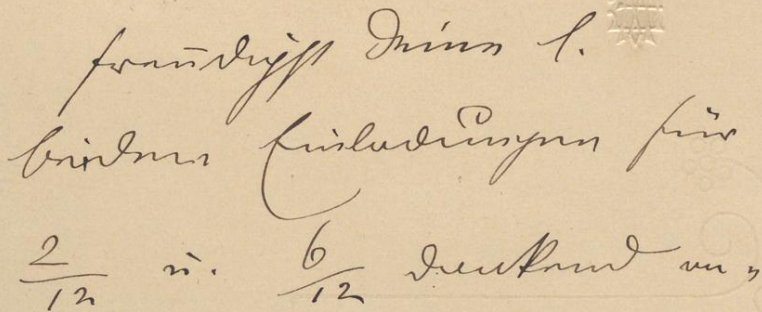 freudigst Deine l.
beiden Einladungen für
2/12 u. 6/12 dankend an-